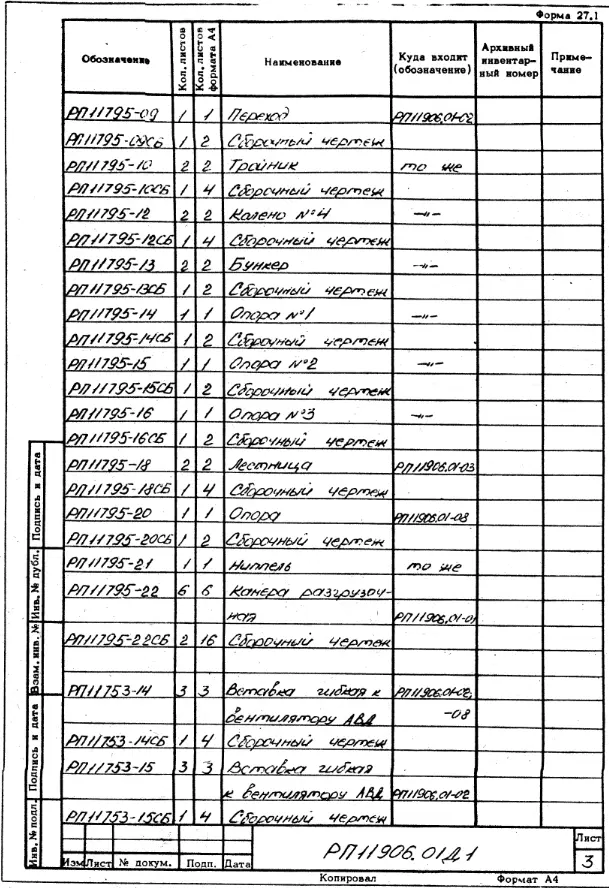 Форма 27.1
Обозначение Кол. листов Кол. листов формата А4 Наименование Куда входит (обозначение) Архивный инвентарный номер Примечание
РП11795-09 1 1 Переход РП11906.01-02
РП11795-09СБ 1 2 Сборочный чертеж
РП11795-10 2 2 Тройник то же
РП11795-10СБ 1 4 Сборочный чертеж
РП11795-12 2 2 Колено №4 —〃—
РП11795-12СБ 1 4 Сборочный чертеж
РП11795-13 2 2 Бункер —〃—
РП11795-13СБ 1 2 Сборочный чертеж
РП11795-14 1 1 Опора №1 —〃—
РП11795-14СБ 1 2 Сборочный чертеж
РП11795-15 1 1 Опора №2 —〃—
РП11795-15СБ 1 2 Сборочный чертеж
РП11795-16 1 1 Опора №3 —〃—
РП11795-16СБ 1 2 Сборочный чертеж
РП11795-18 2 2 Лестница РП11906.01-03
РП11795-18СБ 1 4 Сборочный чертеж
РП11795-20 1 1 Опора РП11906.01-08
РП11795-20СБ 1 2 Сборочный чертеж
РП11795-21 1 1 Ниппель то же
РП11795-22 6 6 Камера разгрузоч-
ная РП11906.01-01
РП11795-22СБ 2 16 Сборочный чертеж
РП11753-14 3 3 Вставка гибкая к РП11906.01-02,
вентилятору АВД -08
РП11753-14СБ 1 4 Сборочный чертеж
РП11753-15 3 3 Вставка гибкая
к вентилятору АВД РП11906.01-02
РП11753-15СБ 1 4 Сборочный чертеж
Инв. № подл. Подпись и дата Взам. инв. № Инв. № дубл. Подпись и дата
Изм Лист № докум. Подп. Дата
РП11906.01Д1
Лист
3
Копировал Формат А4